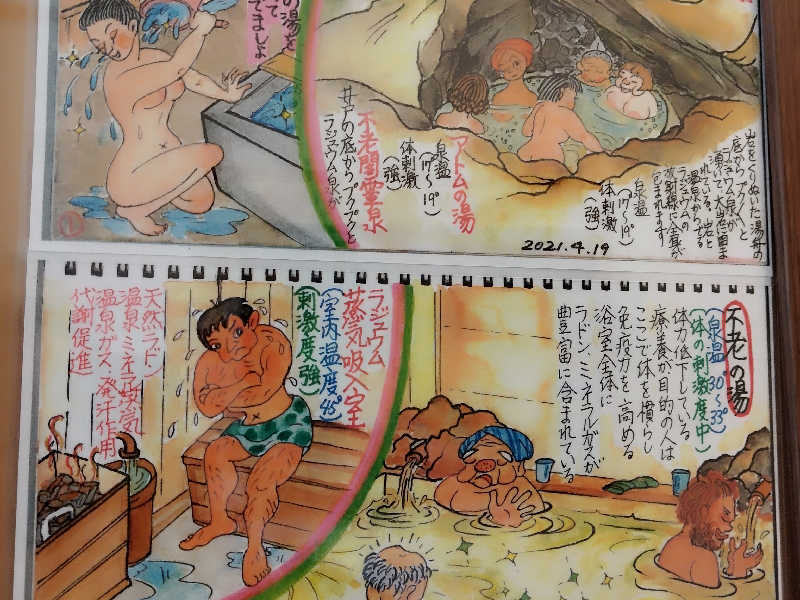 の湯を
て
でましょ
アトムの湯
泉温
(17~19°)
体刺激
(強)
不老閣霊泉
井戸の底からプクプクと
ラジュウム泉が
岩をくりぬいた湯舟の
底からプクプクと
ラジュウム泉が
湧いて大岩に囲ま
れている。岩と
温泉からでる
ラジュウムの
放射線に全身が
包まれます
泉温
(17~19°)
体刺激
(強)
2021.4.19
不老の湯
(泉温30°~33°)
(体の刺激度中)
体力低下している
療養が目的の人は
ここで体を慣らし
免疫力を高める
浴室全体に
ラドン、ミネラルガスが
豊富に含まれている
ラジュウム
蒸気吸入室
(室内温度45°)
(刺激度強)
天然ラドン
温泉ミネラル蒸気
温泉ガス、発汗作用
代謝促進